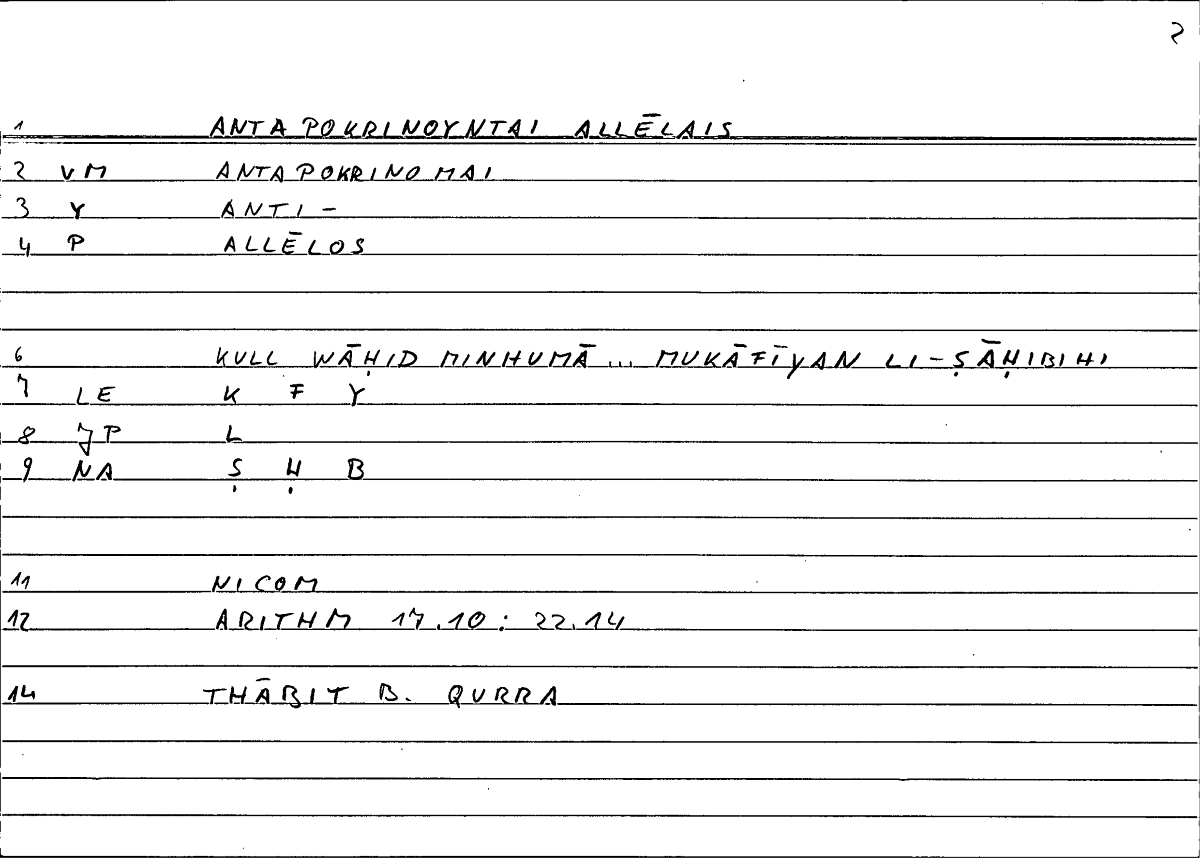 2
1 ANTAPOKRINOYNTAI ALLĒLAIS
2 VM ANTAPOKRINOMAI
3 Y ANTI-
4 P ALLĒLOS
6 KULL WĀḤID MINHUMĀ ... MUKĀFĪYAN LI-ṢĀḤIBIHI
7 LE K F Y
8 JP L
9 NA Ṣ Ḥ B
11 NICOM
12 ARITHM 17.10 : 22.14
14 THĀBIT B. QURRA